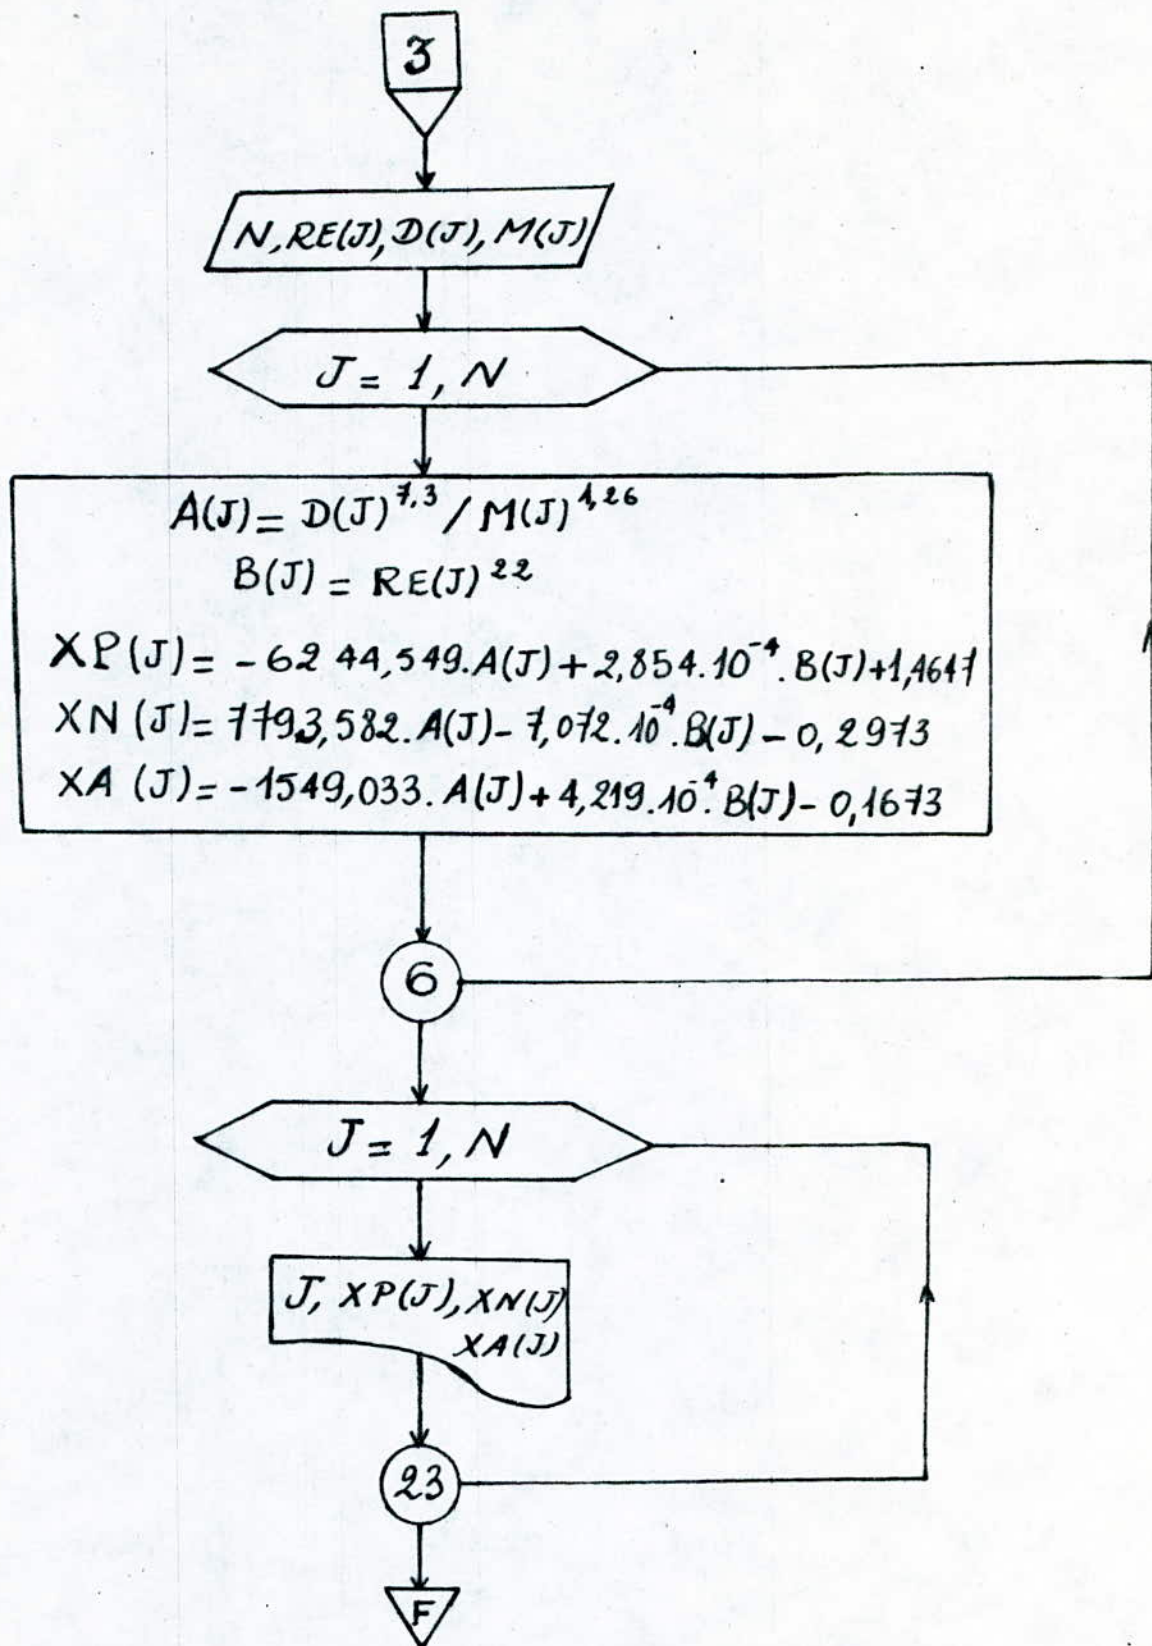 3
N, RE(J), D(J), M(J)
J = 1, N
A(J) = D(J)^7,3 / M(J)^1,26
B(J) = RE(J)^22
XP(J) = -6244,549.A(J) + 2,854.10^-4.B(J) + 1,4647
XN(J) = 7793,582.A(J) - 7,072.10^-4.B(J) - 0,2973
XA(J) = -1549,033.A(J) + 4,219.10^-4.B(J) - 0,1673
6
J = 1, N
J, XP(J), XN(J)
XA(J)
23
F